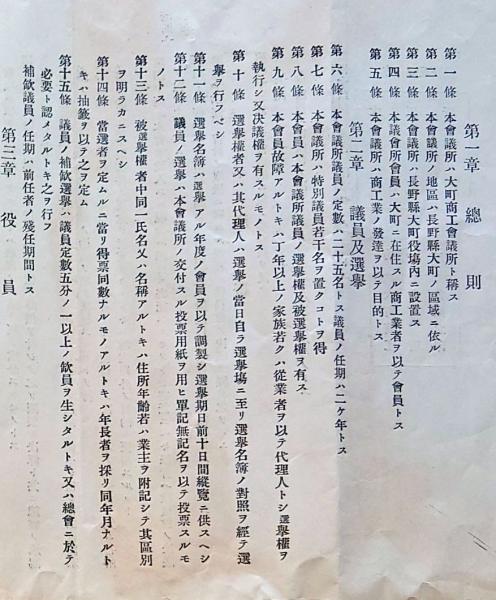 第一章 總則
第一條 本會議所ハ大町商工會議所ト稱ス
第二條 本會議所ノ地區ハ長野縣大町ノ區域ニ依ル
第三條 本會議所ハ長野縣大町役場內ニ設置ス
第四條 本會議所會員ハ大町ニ在住スル商工業者ヲ以テ會員トス
第五條 本會議所ハ商工業ノ發達ヲ以テ目的トス
第二章 議員及選擧
第六條 本會議所議員ノ定數ハ二十五名トス議員ノ任期ハ二ケ年トス
第七條 本會議所ハ特別議員若干名ヲ置クコトヲ得
第八條 本會員ハ本會議所議員ノ選擧權及被選擧權ヲ有ス
第九條 本會員故障アルトキハ丁年以上ノ家族若クハ從業者ヲ以テ代理人トシ選擧權ヲ
執行シ又決議權ヲ有スルモノトス
第十條 選擧權者又ハ其代理人ハ選擧ノ當日自ラ選擧場ニ至リ選擧名簿ノ對照ヲ經テ選
擧ヲ行フベシ
第十一條 選擧名簿ハ選擧アル年度ノ會員ヲ以テ調製シ選擧期日前十日間縱覽ニ供スヘシ
第十二條 議員ノ選擧ハ本會議所ノ交付スル投票用紙ヲ用ヒ單記無記名ヲ以テ投票スルモ
ノトス
第十三條 被選擧權者中同一氏名又ハ名稱アルトキハ住所年齡若ハ業主ヲ附記シテ其區別
ヲ明ラカニスベシ
第十四條 當選者ヲ定ムルニ當リ得票同數ナルモノアルトキハ年長者ヲ採リ同年月ナルト
キハ抽籤ヲ以テ之ヲ定ム
第十五條 議員ノ補欽選擧ハ議員定數五分ノ一以上ノ欽員ヲ生シタルトキ又ハ總會ニ於テ
必要ト認メタルトキ之ヲ行フ
補欽議員ノ任期ハ前任者ノ殘任期間トス
第三章 役員